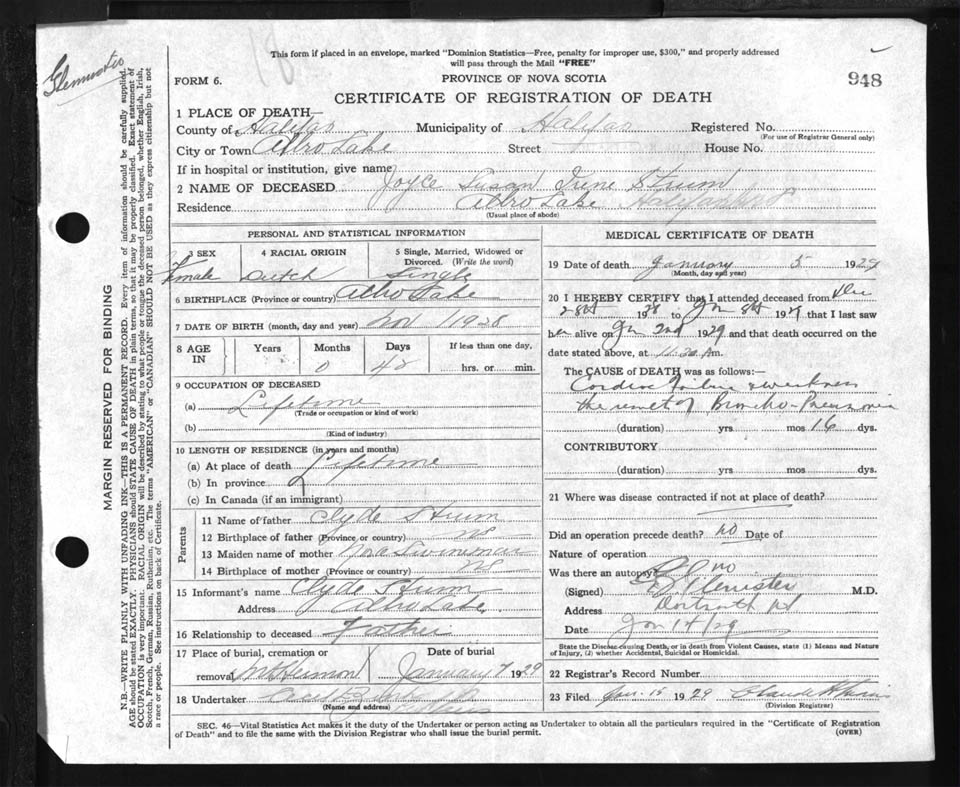 Glenwister
18
This form if placed in an envelope, marked "Dominion Statistics—Free, penalty for improper use, $300," and properly addressed
will pass through the Mail "FREE"
948
FORM 6.
PROVINCE OF NOVA SCOTIA
CERTIFICATE OF REGISTRATION OF DEATH
1 PLACE OF DEATH—
County of Halifax Municipality of Halifax Registered No.
(For use of Registrar General only)
City or Town Albro Lake Street House No.
If in hospital or institution, give name
2 NAME OF DECEASED Joyce Susan Irene Strum
Residence Albro Lake Halifax
(Usual place of abode)
PERSONAL AND STATISTICAL INFORMATION
3 SEX 4 RACIAL ORIGIN 5 Single, Married, Widowed or
Divorced. (Write the word)
Female Dutch Single
6 BIRTHPLACE (Province or country) Albro Lake
7 DATE OF BIRTH (month, day and year) Nov 1928
8 AGE IN Years Months Days If less than one day,
0 hrs. or min.
9 OCCUPATION OF DECEASED
(a) Lifetime
(Trade or occupation or kind of work)
(b)
(Kind of industry)
10 LENGTH OF RESIDENCE (in years and months)
(a) At place of death Lifetime
(b) In province
(c) In Canada (if an immigrant)
Parents
11 Name of father Clyde Strum
12 Birthplace of father (Province or country) NS
13 Maiden name of mother Nora
14 Birthplace of mother (Province or country) NS
15 Informant's name Clyde Strum
Address Albro Lake
16 Relationship to deceased Father
17 Place of burial, cremation or Date of burial
removal Mt Hermon January 7 1929
18 Undertaker
(Name and address)
MEDICAL CERTIFICATE OF DEATH
19 Date of death January 5 1929
(Month, day and year)
20 I HEREBY CERTIFY that I attended deceased from Dec
28th 1928 to Jan 1929 that I last saw
her alive on Jan 2nd 1929 and that death occurred on the
date stated above, at 11.30 A m.
The CAUSE of DEATH was as follows:—
Cardiac Failure & weakness
the result of Broncho-Pneumonia
(duration) yrs mos 16 dys.
CONTRIBUTORY
(duration) yrs mos dys.
21 Where was disease contracted if not at place of death?
Did an operation precede death? no Date of
Nature of operation
Was there an autopsy? no
(Signed) M.D.
Address Dartmouth NS
Date Jan 14/29
State the Disease causing Death, or in death from Violent Causes, state (1) Means and Nature
of Injury, (2) whether Accidental, Suicidal or Homicidal.
22 Registrar's Record Number
23 Filed Jan. 15 1929 Claude
(Division Registrar)
SEC. 46—Vital Statistics Act makes it the duty of the Undertaker or person acting as Undertaker to obtain all the particulars required in the "Certificate of Registration
of Death" and to file the same with the Division Registrar who shall issue the burial permit.
(OVER)
MARGIN RESERVED FOR BINDING
N.B.—WRITE PLAINLY WITH UNFADING INK—THIS IS A PERMANENT RECORD. Every item of information should be carefully supplied.
AGE should be stated EXACTLY. PHYSICIANS should STATE CAUSE OF DEATH in plain terms, so that it may be properly classified. Exact statement of
OCCUPATION is very important. RACIAL ORIGIN will be described by stating to what people or tongue the deceased person belonged, whether English, Irish,
Scotch, French, German, Russian, Ruthenian, etc. The terms "AMERICAN" or "CANADIAN" SHOULD NOT BE USED as they express citizenship but not
a race or people. See instructions on back of Certificate.